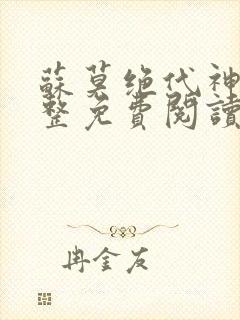 蘇莫绝代神
整免費閱讀
冉金友